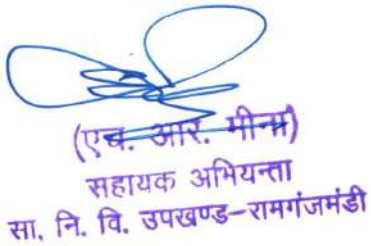 (एच. आर. मीना)
सहायक अभियन्ता
सा. नि. वि. उपखण्ड-रामगंजमंडी